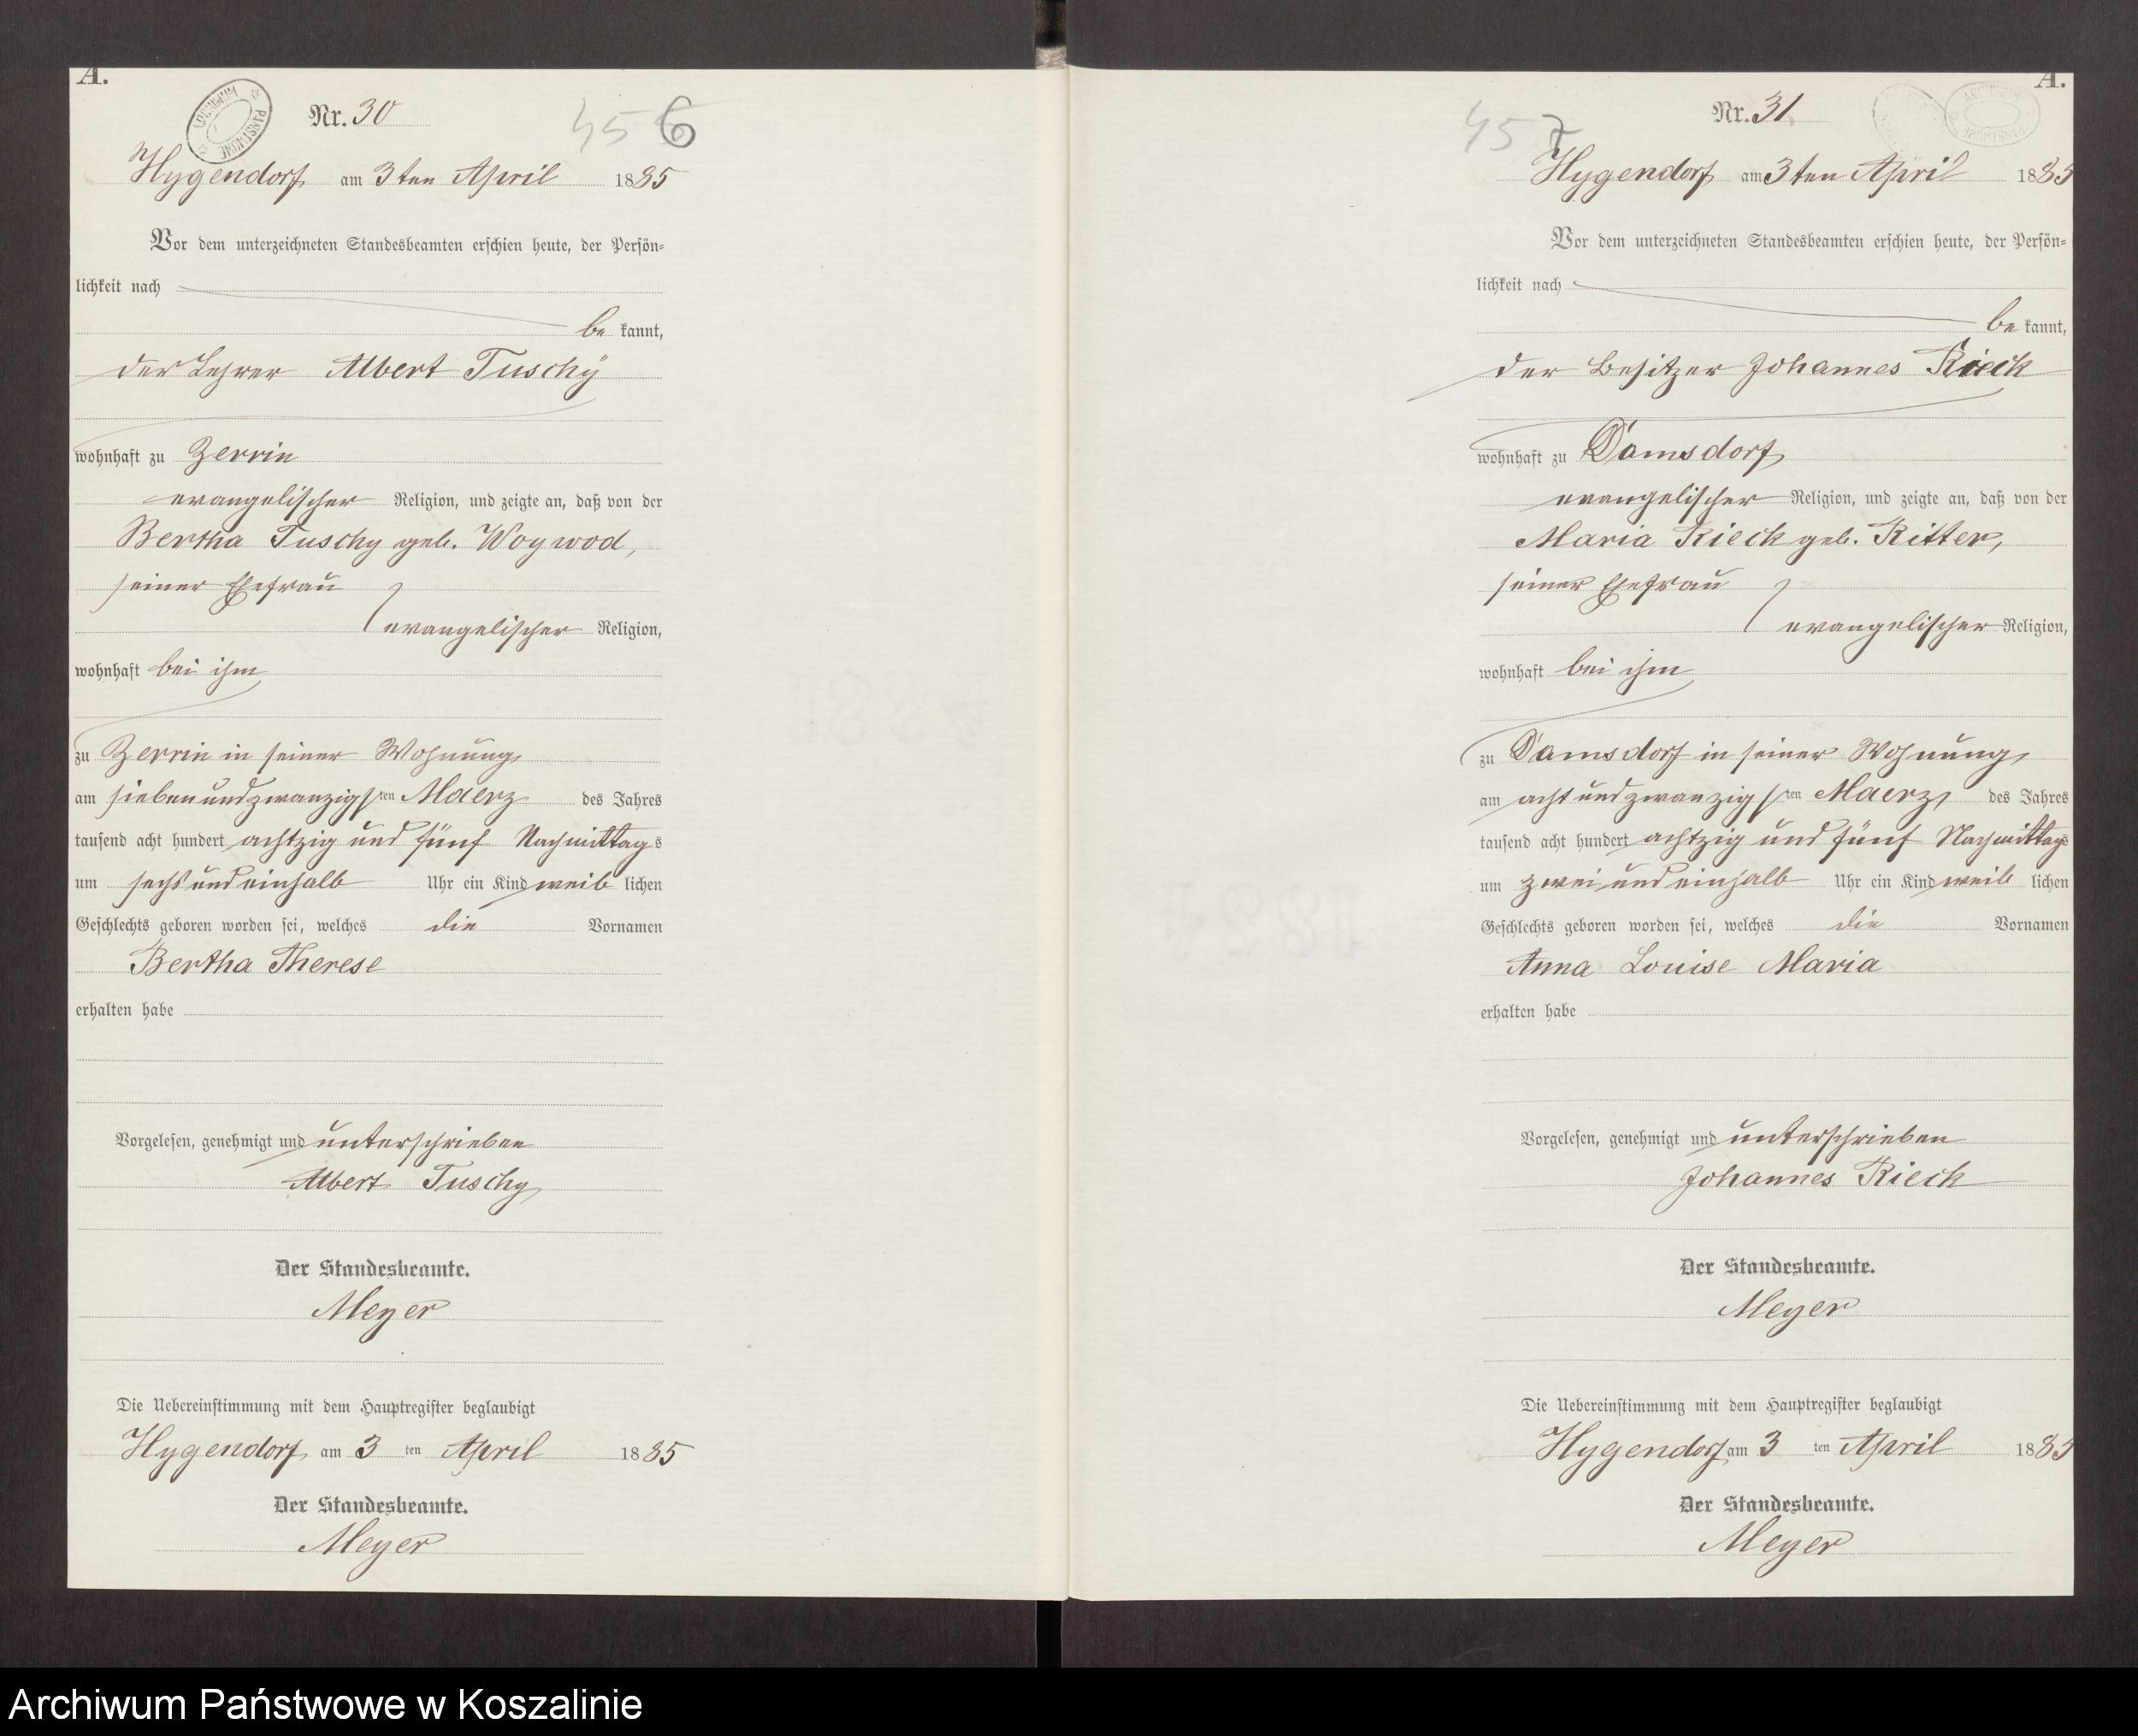 A.
ARCHIWUM PAŃSTWOWE
Nr. 30
456
Hygendorf am 3ten April 1885
Vor dem unterzeichneten Standesbeamten erschien heute, der Persön-
lichkeit nach
be kannt,
der Lehrer Albert Tuschy
wohnhaft zu Zerrin
evangelischer Religion, und zeigte an, daß von der
Bertha Tuschy geb. Woywod,
seiner Ehefrau
evangelischer Religion,
wohnhaft bei ihm
zu Zerrin in seiner Wohnung
am siebenundzwanzigsten Maerz des Jahres
tausend acht hundert achtzig und fünf Nachmittags
um sechs und einhalb Uhr ein Kind weib lichen
Geschlechts geboren worden sei, welches die Vornamen
Bertha Therese
erhalten habe
Vorgelesen, genehmigt und unterschrieben
Albert Tuschy
Der Standesbeamte.
Meyer
Die Uebereinstimmung mit dem Hauptregister beglaubigt
Hygendorf am 3 ten April 1885
Der Standesbeamte.
Meyer
A.
Nr. 31.
457
Hygendorf am 3ten April 1885
Vor dem unterzeichneten Standesbeamten erschien heute, der Persön-
lichkeit nach
be kannt,
der Besitzer Johannes Rieck
wohnhaft zu Damsdorf
evangelischer Religion, und zeigte an, daß von der
Maria Rieck geb. Ritter,
seiner Ehefrau
evangelischer Religion,
wohnhaft bei ihm
zu Damsdorf in seiner Wohnung
am acht und zwanzigsten Maerz des Jahres
tausend acht hundert achtzig und fünf Nachmittags
um zwei und einhalb Uhr ein Kind weib lichen
Geschlechts geboren worden sei, welches die Vornamen
Anna Louise Maria
erhalten habe
Vorgelesen, genehmigt und unterschrieben
Johannes Rieck
Der Standesbeamte.
Meyer
Die Uebereinstimmung mit dem Hauptregister beglaubigt
Hygendorf am 3 ten April 1885
Der Standesbeamte.
Meyer
Archiwum Państwowe w Koszalinie